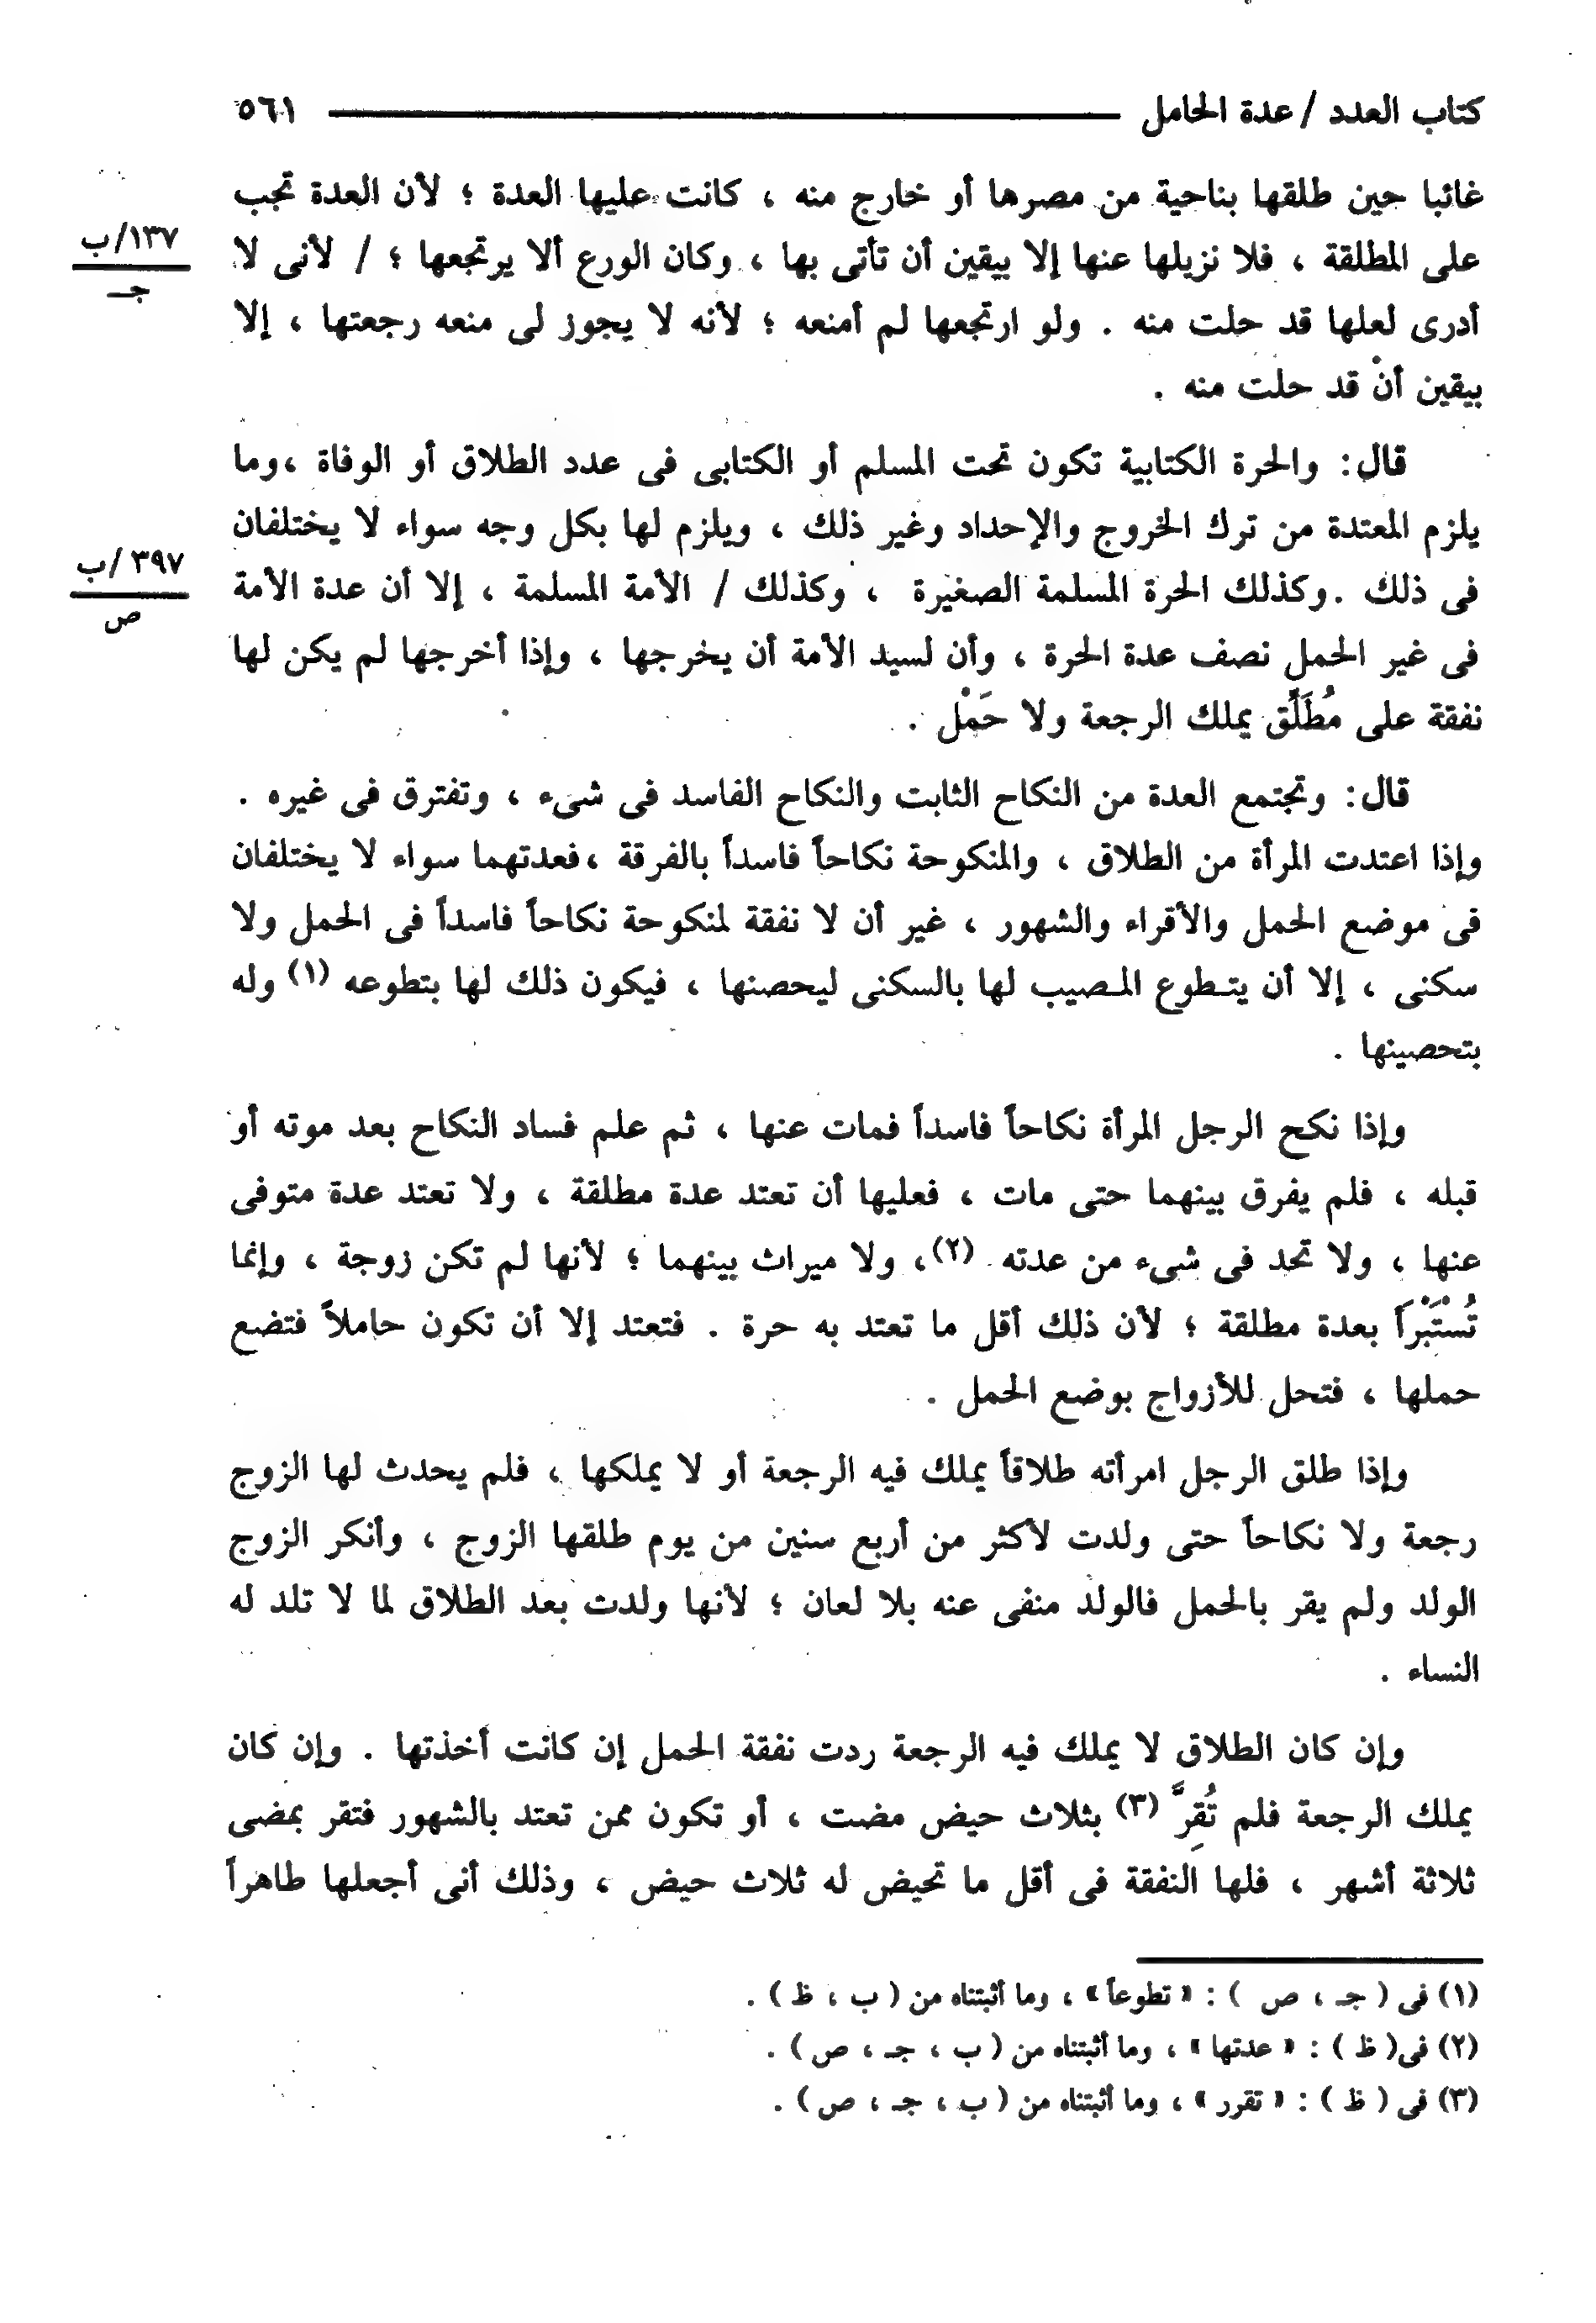 كتاب العدد / عدة الحامل ٥٦١
غائبا حين طلقها بناحية من مصرها أو خارج منه ، كانت عليها العدة ؛ لأن العدة تجب
١٣٧/ب
جـ
على المطلقة ، فلا نزيلها عنها إلا بيقين أن تأتى بها ، وكان الورع ألا يرتجعها ؛ / لأنى لا
أدرى لعلها قد حلت منه . ولو ارتجعها لم أمنعه ؛ لأنه لا يجوز لى منعه رجعتها ، إلا
بيقين أنْ قد حلت منه .
قال: والحرة الكتابية تكون تحت المسلم أو الكتابى فى عدد الطلاق أو الوفاة ،وما
يلزم المعتدة من ترك الخروج والإحداد وغير ذلك ، ويلزم لها بكل وجه سواء لا يختلفان
٣٩٧/ب
ص
فى ذلك .وكذلك الحرة المسلمة الصغيرة ، وكذلك / الأمة المسلمة ، إلا أن عدة الأمة
فى غير الحمل نصف عدة الحرة ، وأن لسيد الأمة أن يخرجها ، وإذا أخرجها لم يكن لها
نفقة على مُطَلِّق يملك الرجعة ولا حَمْل .
قال: وتجتمع العدة من النكاح الثابت والنكاح الفاسد فى شىء ، وتفترق فى غيره .
وإذا اعتدت المرأة من الطلاق ، والمنكوحة نكاحاً فاسداً بالفرقة ،فعدتهما سواء لا يختلفان
فى موضع الحمل والأقراء والشهور ، غير أن لا نفقة لمنكوحة نكاحاً فاسداً فى الحمل ولا
سكنى ، إلا أن يتـطوع المـصيب لها بالسكنى ليحصنها ، فيكون ذلك لها بتطوعه (١) وله
بتحصينها .
وإذا نكح الرجل المرأة نكاحاً فاسداً فمات عنها ، ثم علم فساد النكاح بعد موته أو
قبله ، فلم يفرق بينهما حتى مات ، فعليها أن تعتد عدة مطلقة ، ولا تعتد عدة متوفى
عنها ، ولا تحد فى شىء من عدته (٢)، ولا ميراث بينهما ؛ لأنها لم تكن زوجة ، وإنما
تُسْتَبْرَأ بعدة مطلقة ؛ لأن ذلك أقل ما تعتد به حرة . فتعتد إلا أن تكون حاملاً فتضع
حملها ، فتحل للأزواج بوضع الحمل .
وإذا طلق الرجل امرأته طلاقاً يملك فيه الرجعة أو لا يملكها ، فلم يحدث لها الزوج
رجعة ولا نكاحاً حتى ولدت لأكثر من أربع سنين من يوم طلقها الزوج ، وأنكر الزوج
الولد ولم يقر بالحمل فالولد منفى عنه بلا لعان ؛ لأنها ولدت بعد الطلاق لما لا تلد له
النساء .
وإن كان الطلاق لا يملك فيه الرجعة ردت نفقة الحمل إن كانت أخذتها . وإن كان
يملك الرجعة فلم تُقِرَّ (٣) بثلاث حيض مضت ، أو تكون ممن تعتد بالشهور فتقر بمضى
ثلاثة أشهر ، فلها النفقة فى أقل ما تحيض له ثلاث حيض ، وذلك أنى أجعلها طاهراً
(١) فى ( جـ ، ص ) : « تطوعاً » ، وما أثبتناه من ( ب ، ظ ) .
(٢) فى( ظ ) : « عدتها » ، وما أثبتناه من ( ب ، جـ ، ص ) .
(٣) فى ( ظ ) : « تقرر » ، وما أثبتناه من ( ب ، جـ ، ص ) .